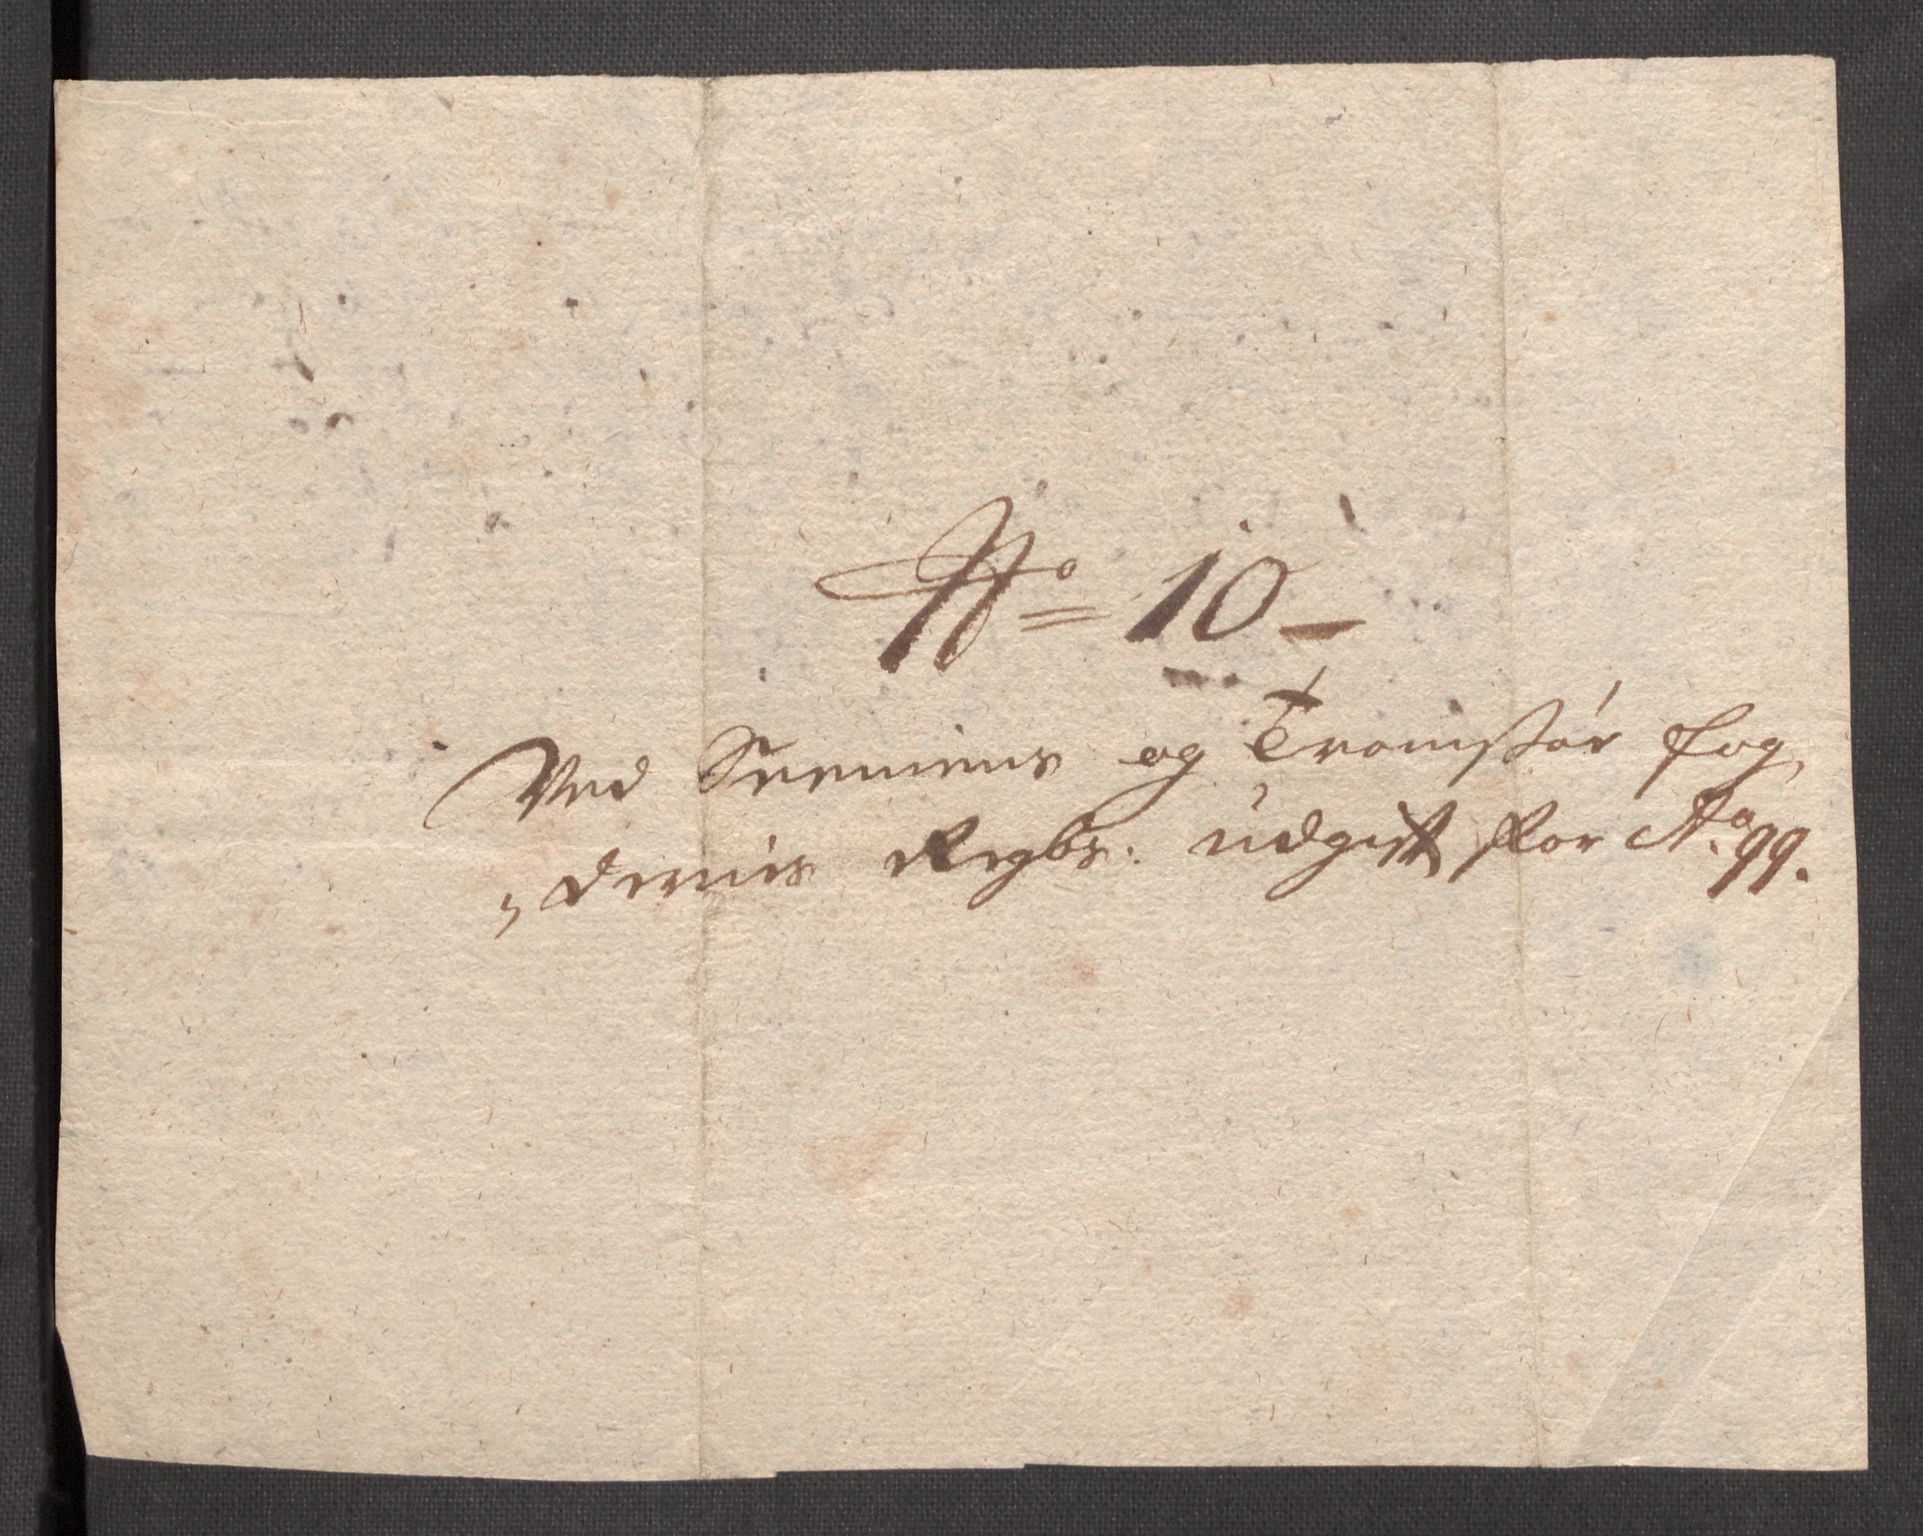 No 10 –
Ved Senniens og Tromsøes fog
„deries Regbs: udgift for Ao 99.